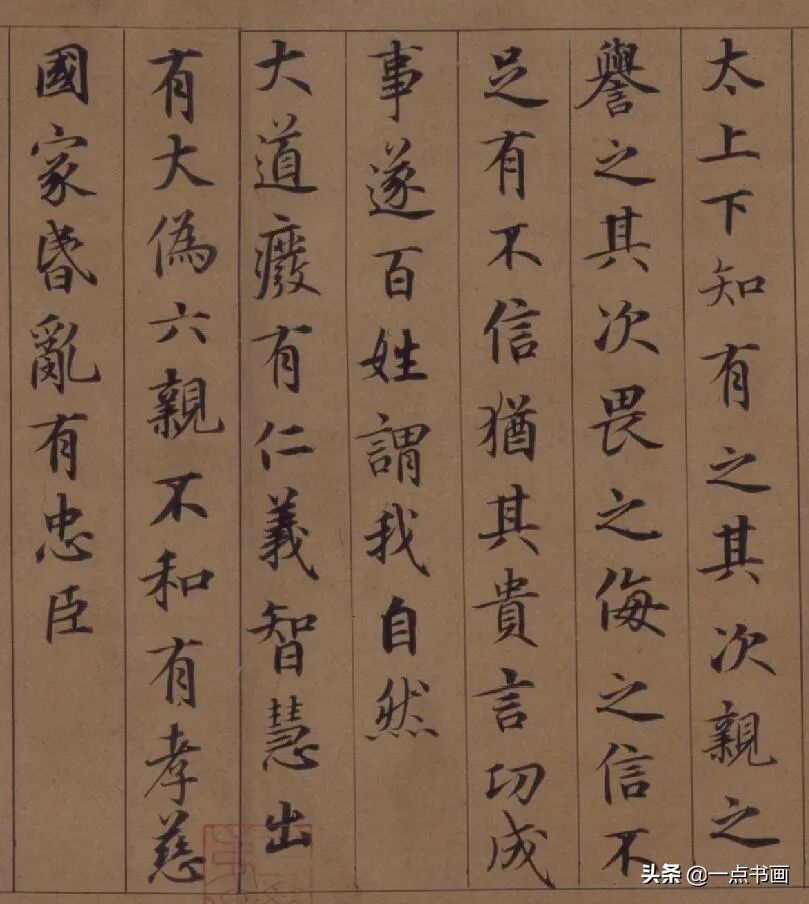 太上下知有之其次親之
譽之其次畏之侮之信不
足有不信猶其貴言功成
事遂百姓謂我自然
大道癈有仁義智慧出
有大偽六親不和有孝慈
國家昬亂有忠臣
头条 @一点书画